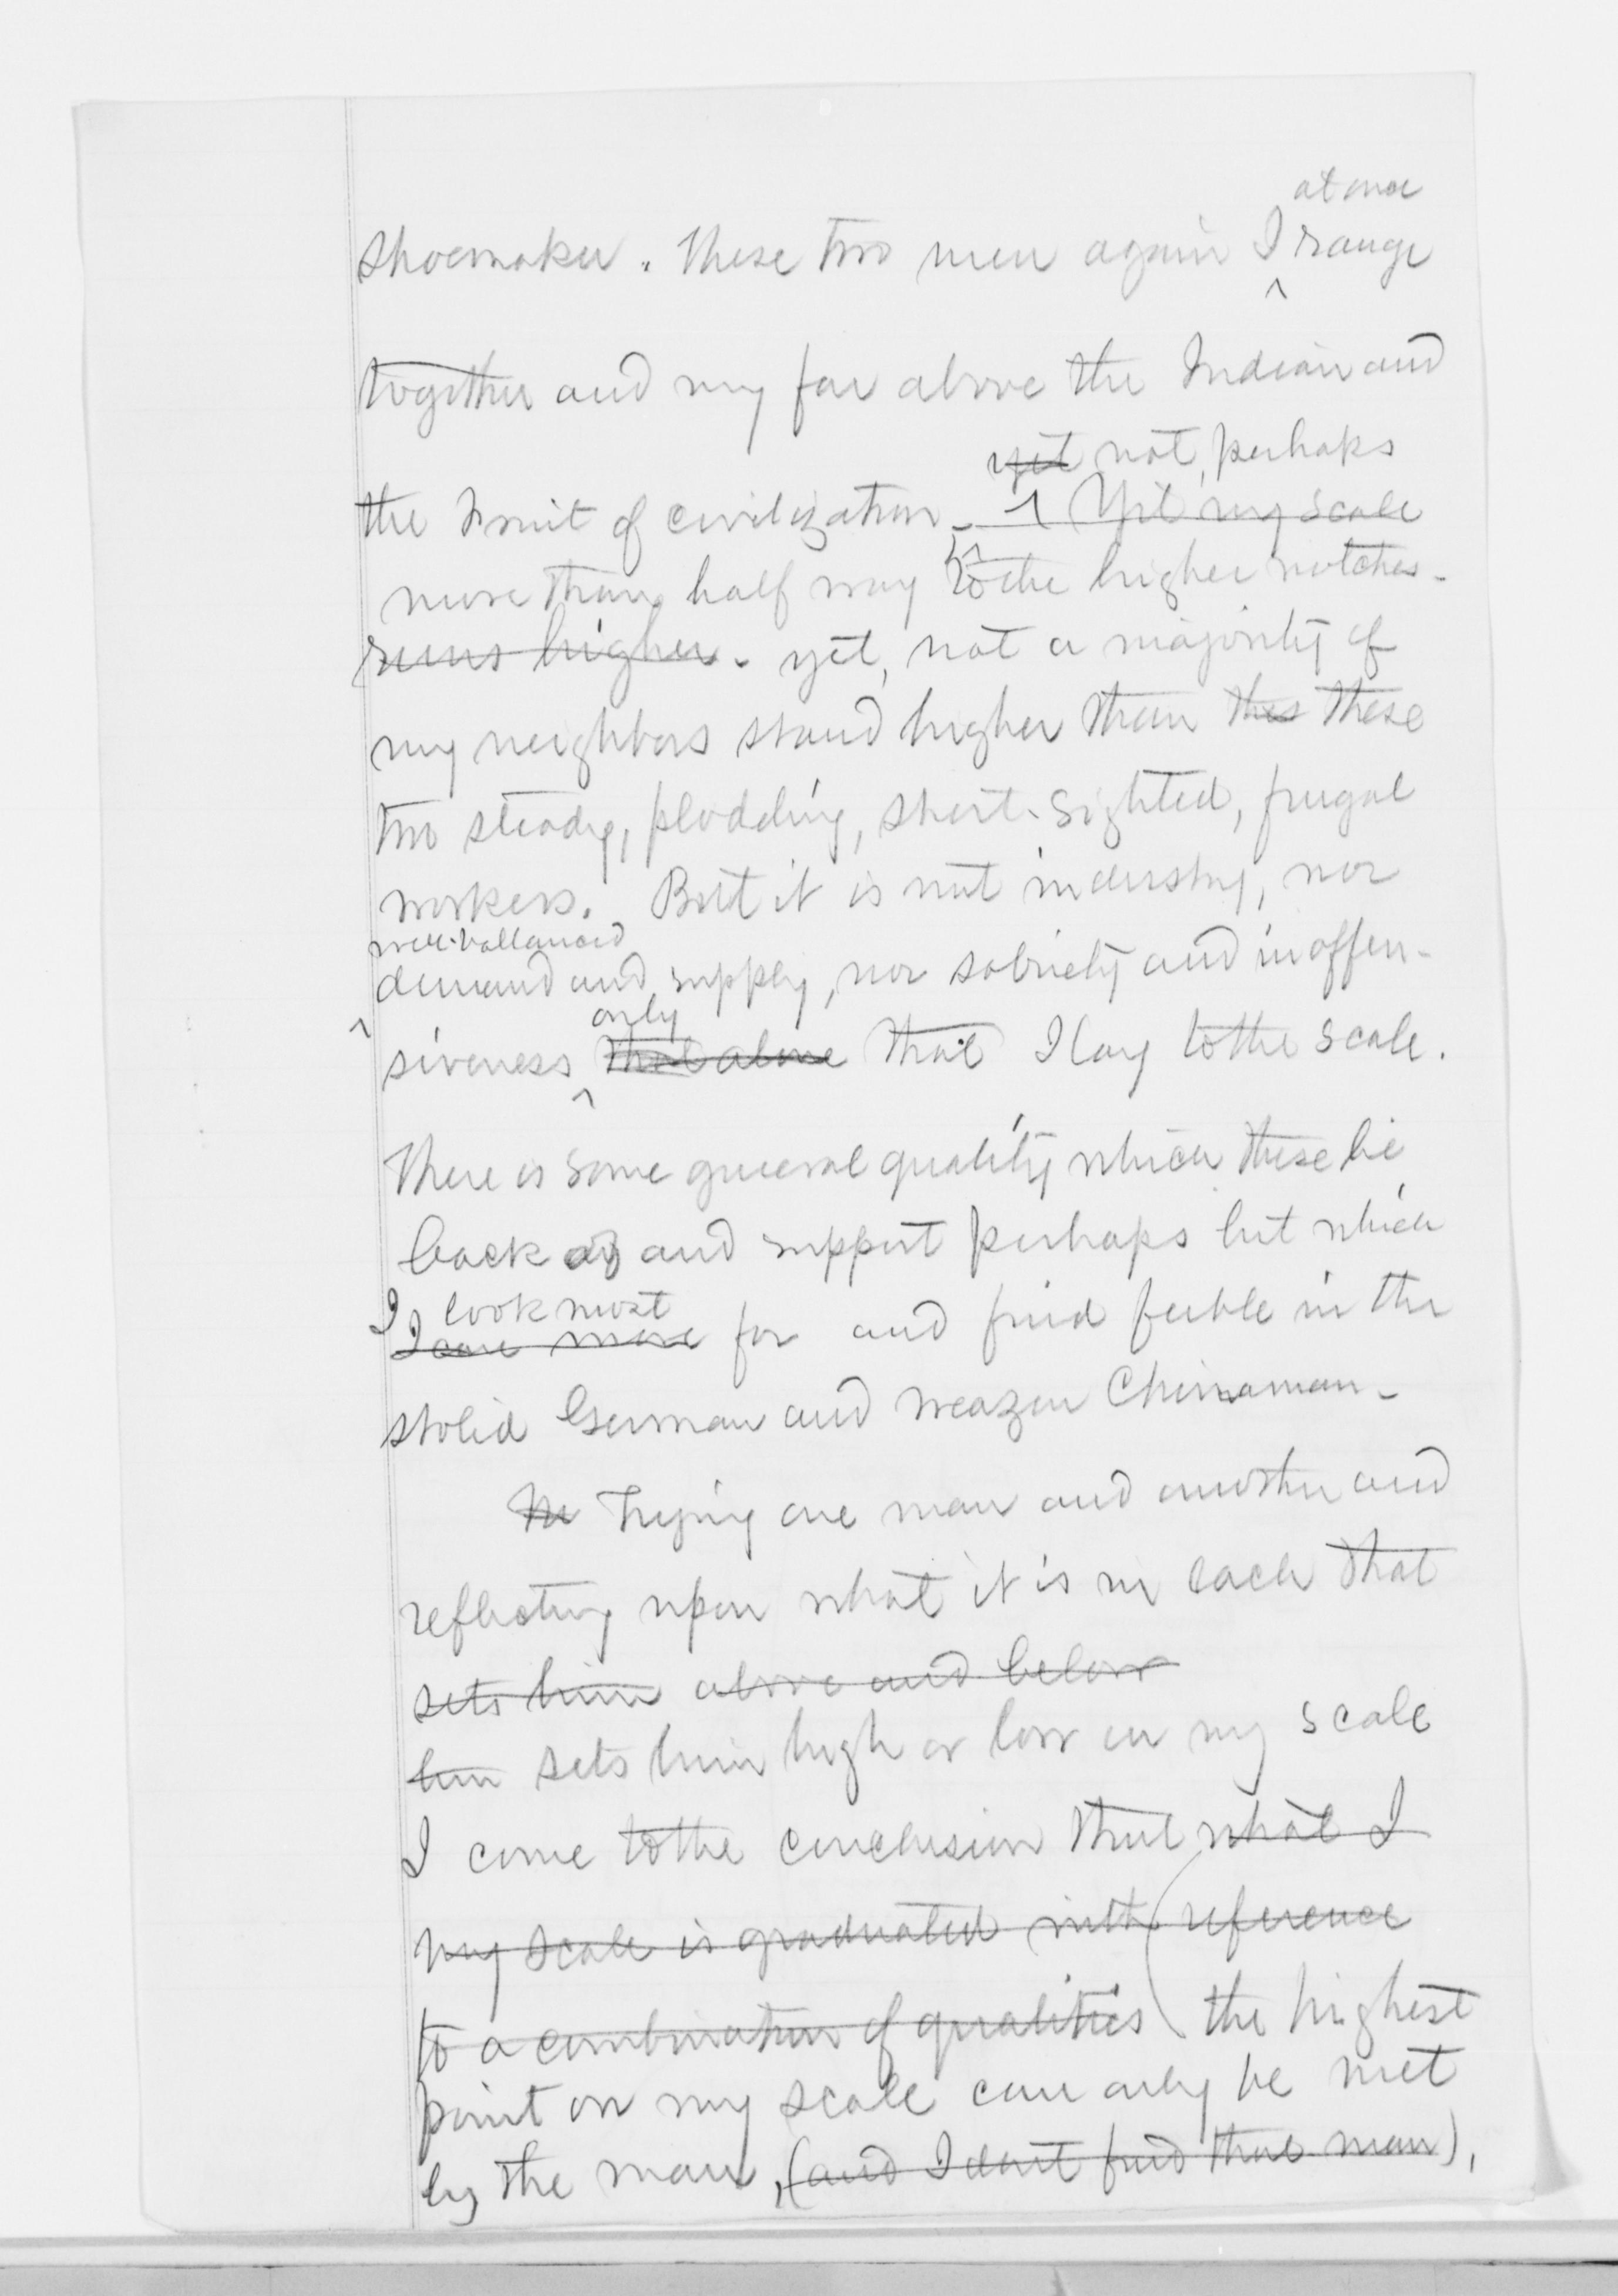 at once
shoemaker. These two men again I range
together and very far above the Indian and
yet not, perhaps
the limit of civilization, Yet my scale
more than half way to the higher notches.
runs higher. yet, not a majority of
my neighbors stand higher than this these
two steady, plodding, short-sighted, frugal
workers. But it is not industry, nor
well-ballanced
demand and supply, nor sobriety and inoffen-
only
siveness that alone that I lay to the scale.
There is some general quality which these lie
back and support perhaps but which
I look most
I care more for and find feeble in the
stolid German and weazen Chinaman.
In Trying one man and another and
reflecting upon what it is in each that
sets him above and below
him sets him high or low on my scale
I come to the conclusion that what I
my scale is graduated with reference
to a combination of qualities the highest
point on my scale can only be met
by the man, (and I don't find that man),